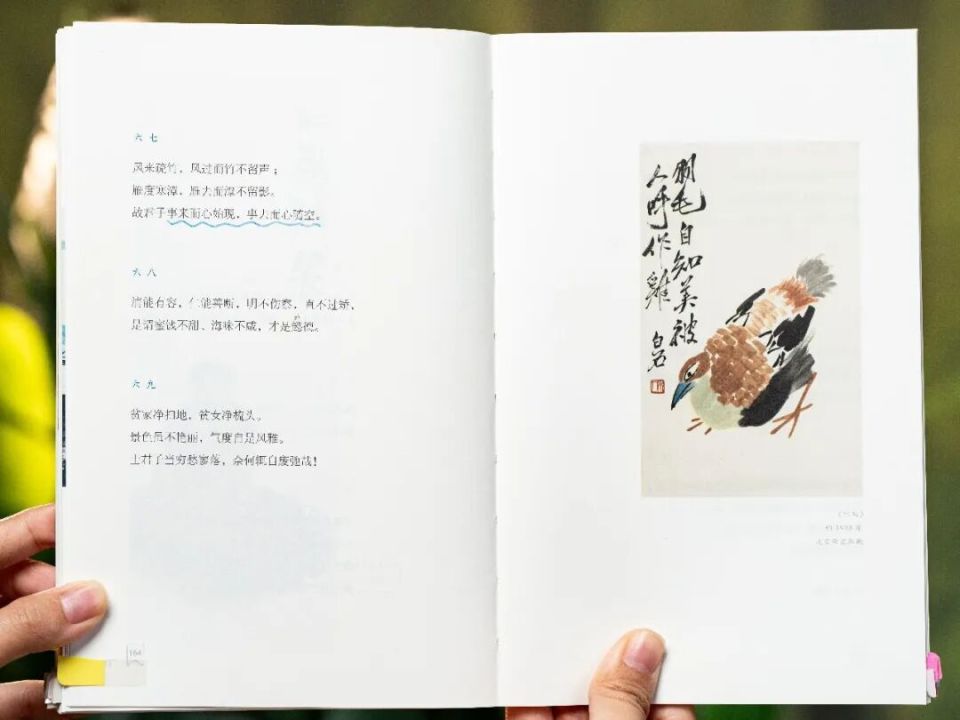 六七
风来疏竹，风过而竹不留声；
雁度寒潭，雁去而潭不留影。
故君子事来而心始现，事去而心随空。
六八
清能有容，仁能善断，明不伤察，直不过矫，
是谓蜜饯不甜、海味不咸，才是懿德。
六九
贫家净扫地，贫女净梳头。
景色虽不艳丽，气度自是风雅。
士君子当穷愁寥落，奈何辄自废弛哉！
164
羽毛自知美被
人呼作雞
白石